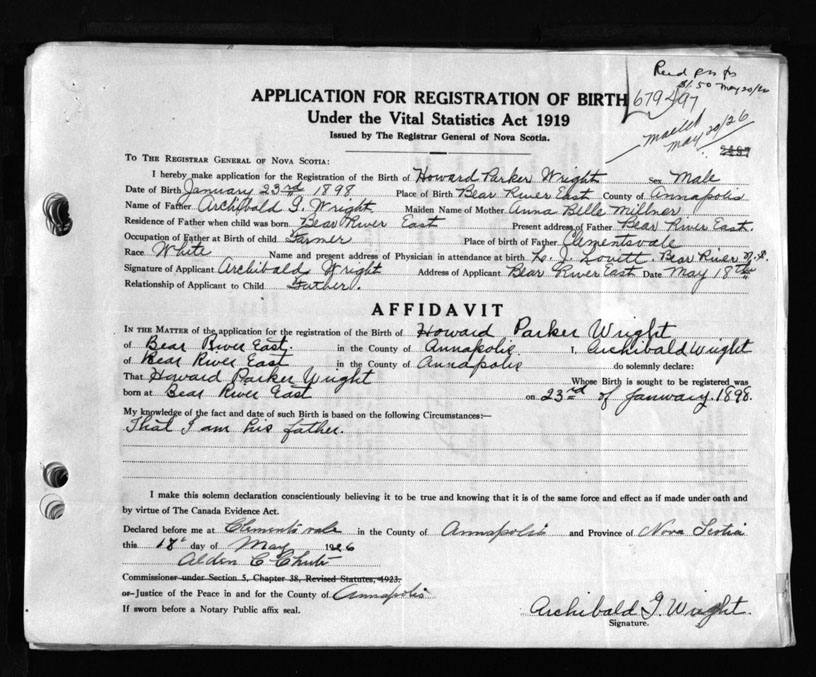 Recd pos to
$1.50 May 20/26
APPLICATION FOR REGISTRATION OF BIRTH 679497
Under the Vital Statistics Act 1919
Issued by The Registrar General of Nova Scotia.
mailed
May 20/26
TO THE REGISTRAR GENERAL OF NOVA SCOTIA:
I hereby make application for the Registration of the Birth of Howard Parker Wright Sex Male
Date of Birth January 23rd 1898 Place of Birth Bear River East County of Annapolis
Name of Father Archibald G. Wright Maiden Name of Mother Anna Belle Millner
Residence of Father when child was born Bear River East Present address of Father Bear River East.
Occupation of Father at Birth of child Farmer Place of birth of Father Clementsvale
Race White Name and present address of Physician in attendance at birth L. J. Lovitt. Bear River N.S.
Signature of Applicant Archibald Wright Address of Applicant Bear River East Date May 18th
Relationship of Applicant to Child Father.
AFFIDAVIT
IN THE MATTER of the application for the registration of the Birth of Howard Parker Wright
of Bear River East. in the County of Annapolis. I, Archibald Wright
of Bear River East in the County of Annapolis do solemnly declare:
That Howard Parker Wright Whose Birth is sought to be registered was
born at Bear River East on 23rd of January 1898
My knowledge of the fact and date of such Birth is based on the following Circumstances:—
That I am his father.
I make this solemn declaration conscientiously believing it to be true and knowing that it is of the same force and effect as if made under oath and
by virtue of The Canada Evidence Act.
Declared before me at Clementsvale in the County of Annapolis and Province of Nova Scotia
this 18th day of May 1926
Alden C Chute
Commissioner under Section 5, Chapter 38, Revised Statutes, 1923,
or Justice of the Peace in and for the County of Annapolis
If sworn before a Notary Public affix seal.
Archibald G. Wright.
Signature.